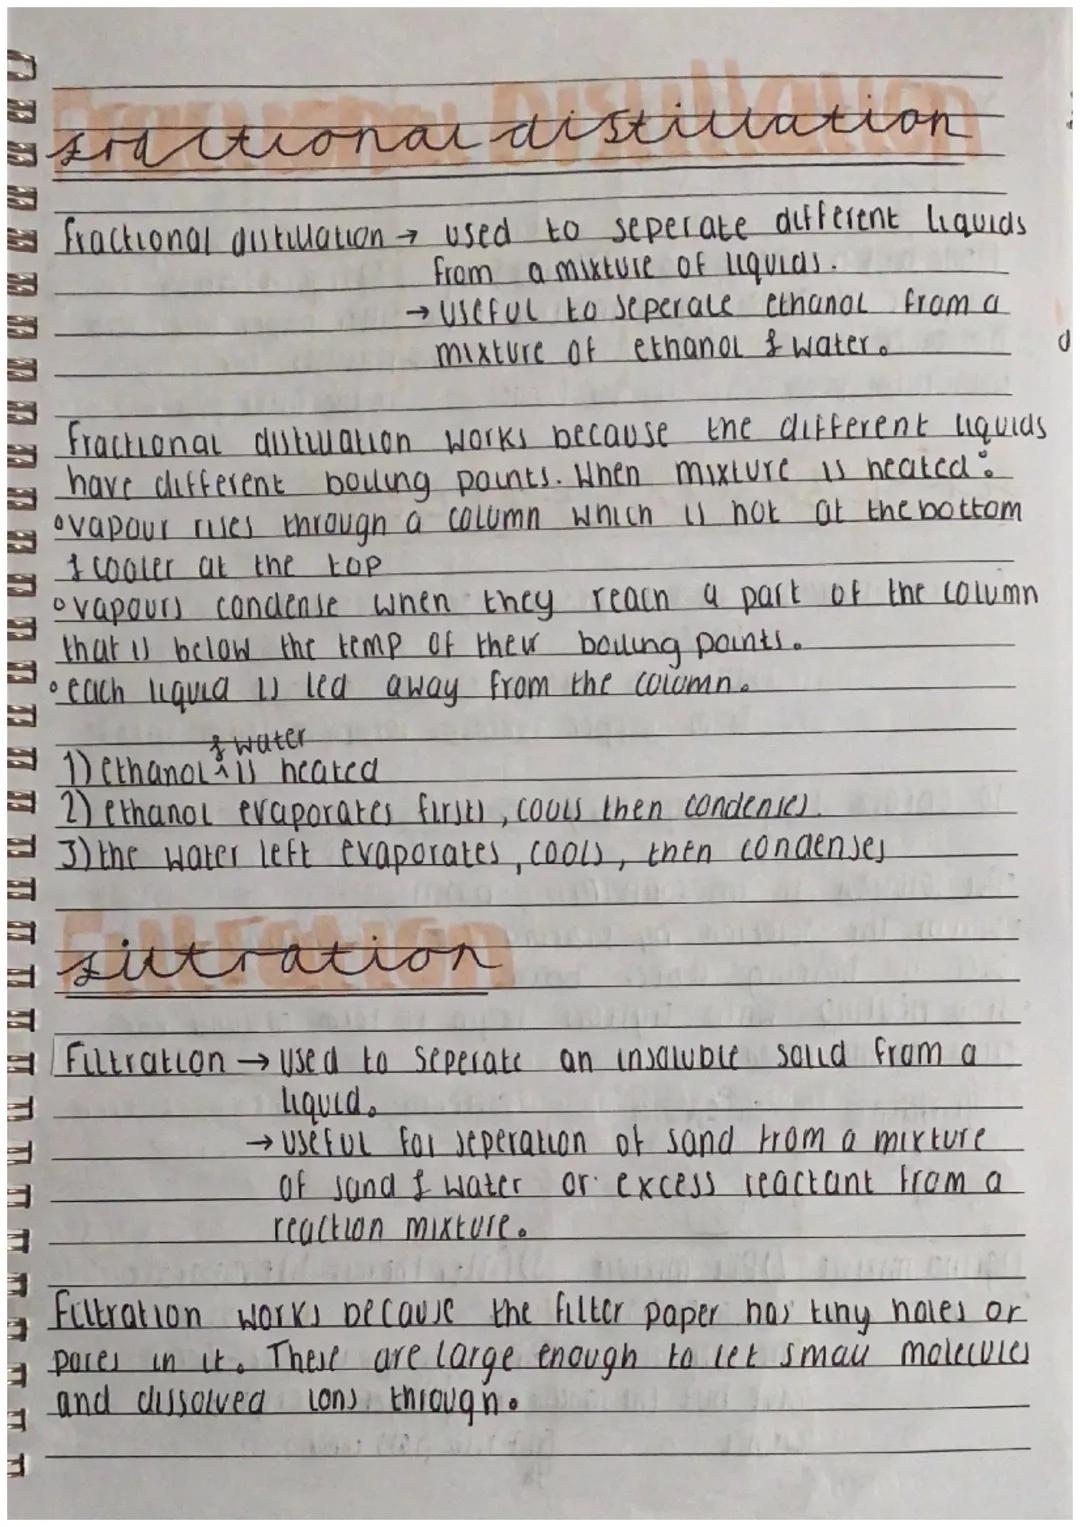 Fractional Distillation
fractional distillation
fractional distillation → used to seperate different liquids
from a mixture of liquids.
→ useful to seperate ethanol from a
mixture of ethanol & water.
fractional distillation works because the different liquids
have different boiling points. When mixture is heated:
• vapour rises through a column which is hot at the bottom
& cooler at the top
• vapours condense when they reach a part of the column
that is below the temp of their boiling points.
• each liquid is led away from the column.
& water
1) ethanol ^ is heated
2) ethanol evaporates firsts, cools then condenses.
3) the water left evaporates, cools, then condenses
Filtration
filtration
Filtration → used to seperate an insoluble solid from a
liquid.
→ useful for seperation of sand from a mixture
of sand & water or excess reactant from a
reaction mixture.
Filtration works because the filter paper has tiny holes or
pores in it. These are large enough to let small molecules
and dissolved ions through.